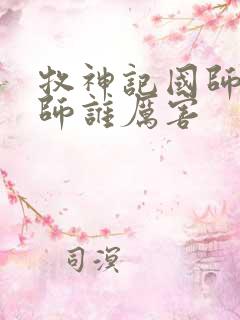 牧神記國師
師誰厲害
司溟